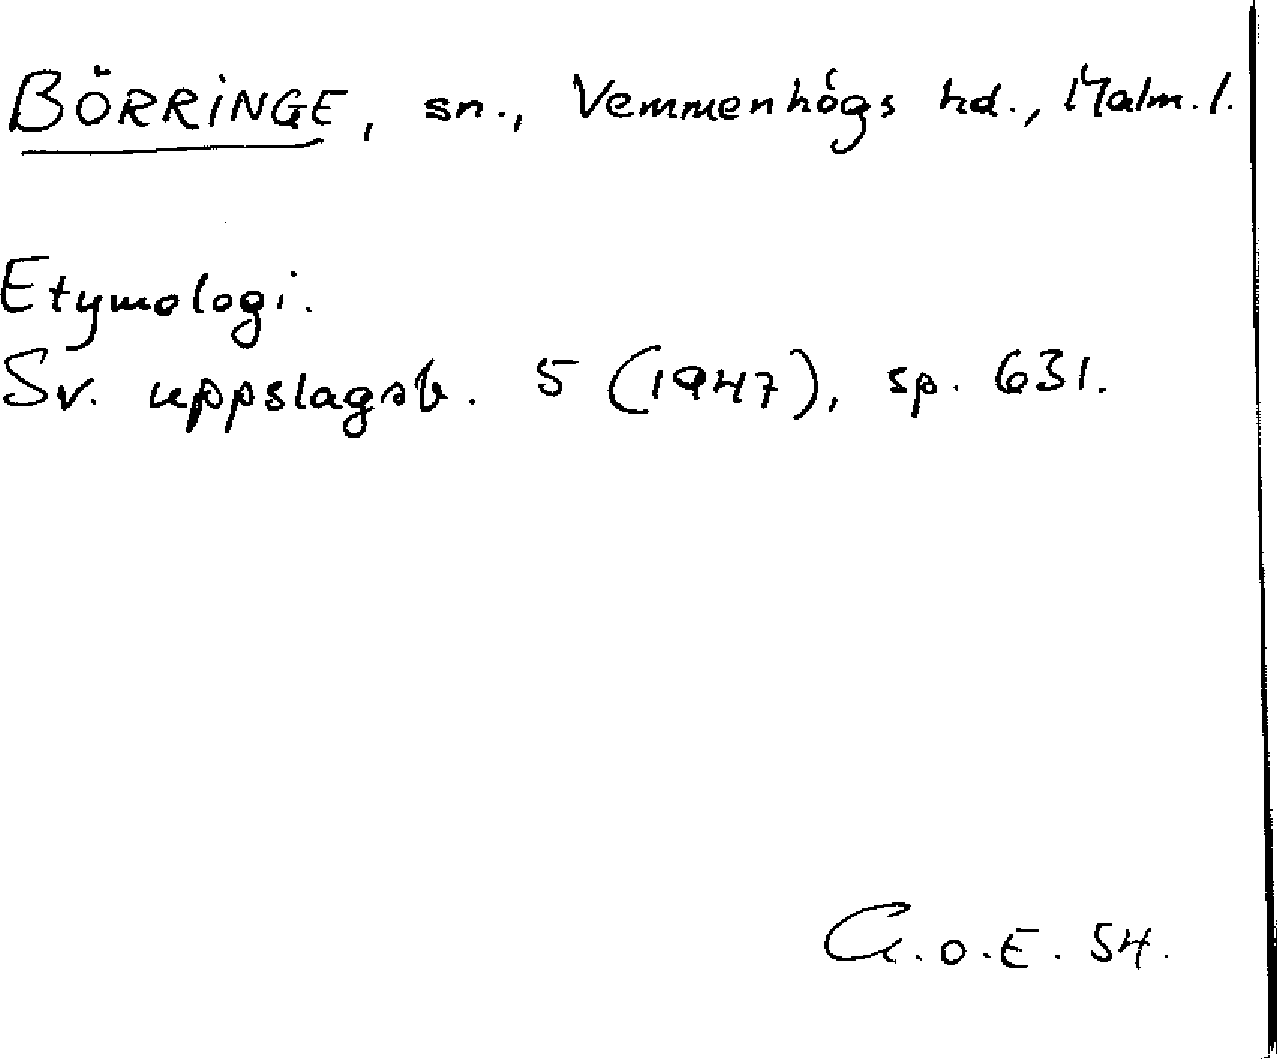 BÖRRINGE, sn., Vemmenhögs hd., Malm. l.
Etymologi.
Sv. uppslagsb. 5 (1947), sp. 631.
G.O.E. 54.